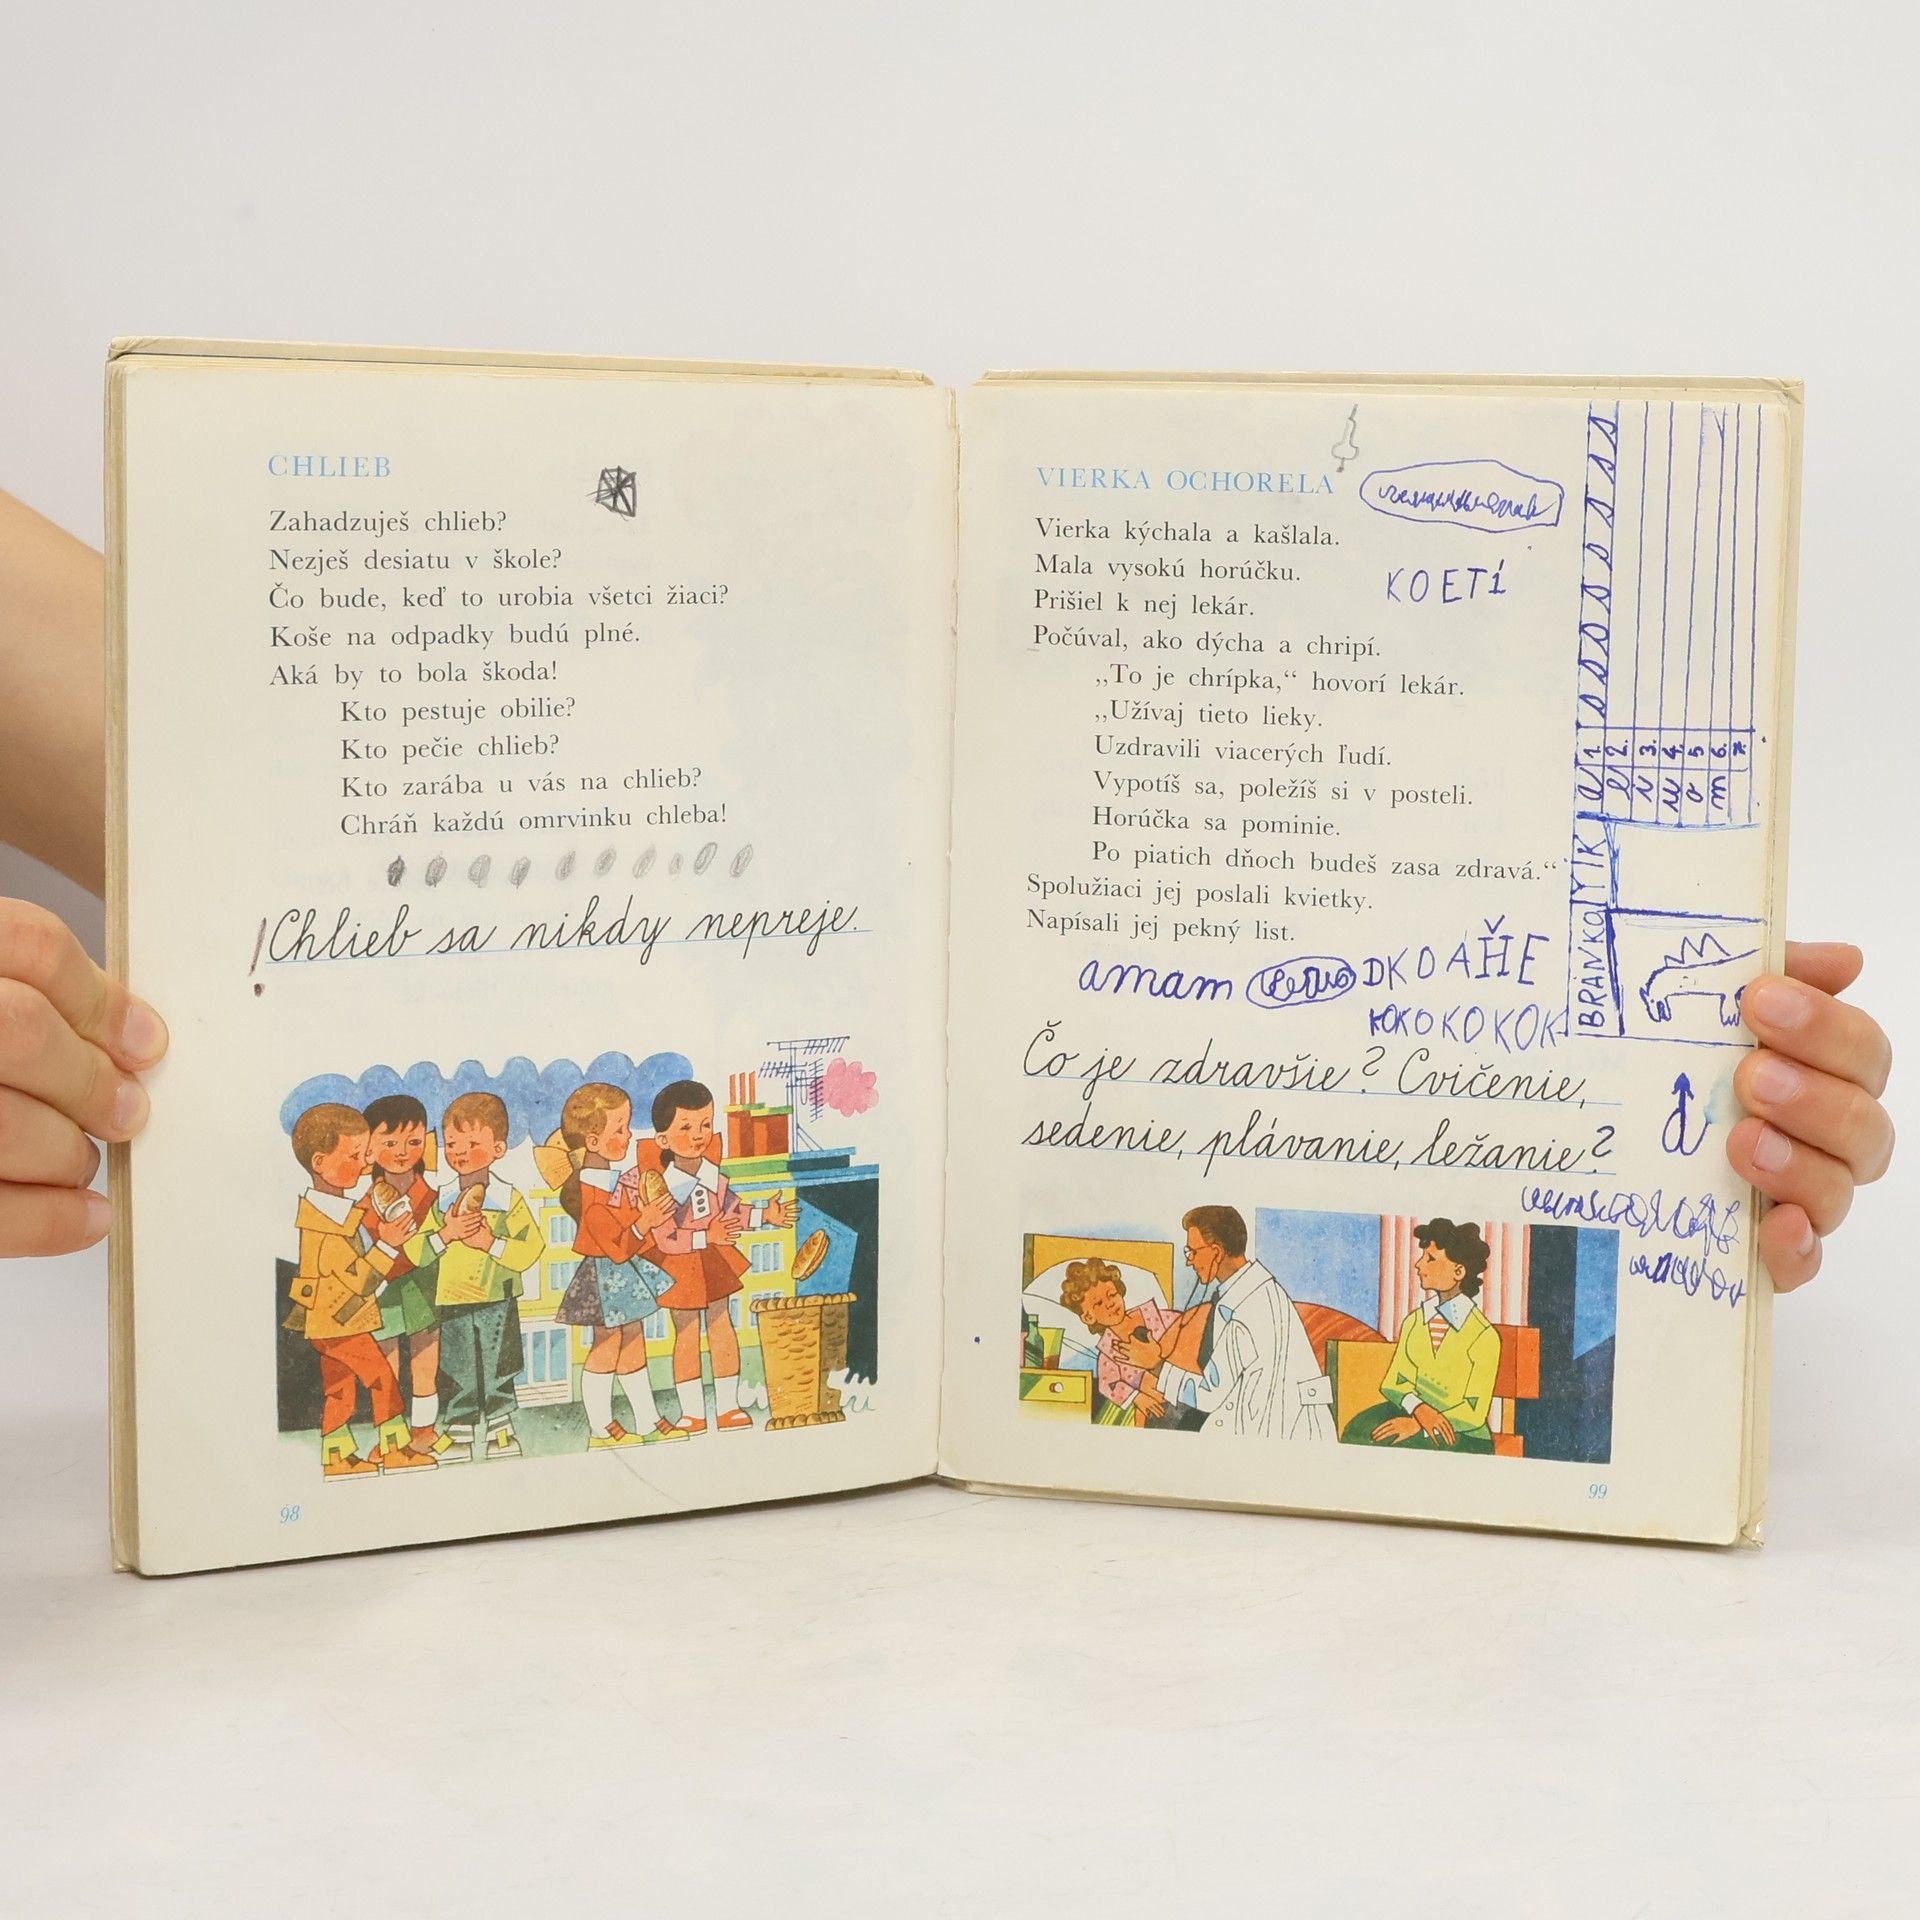 CHLIEB
Zahadzuješ chlieb?
Nezješ desiatu v škole?
Čo bude, keď to urobia všetci žiaci?
Koše na odpadky budú plné.
Aká by to bola škoda!
Kto pestuje obilie?
Kto pečie chlieb?
Kto zarába u vás na chlieb?
Chráň každú omrvinku chleba!
Chlieb sa nikdy nepreje.
98
VIERKA OCHORELA
Vierka kýchala a kašlala.
KOETÍ
Mala vysokú horúčku.
Prišiel k nej lekár.
Počúval, ako dýcha a chripí.
„To je chrípka,“ hovorí lekár.
„Užívaj tieto lieky.
Uzdravili viacerých ľudí.
Vypotíš sa, poležíš si v posteli.
Horúčka sa pominie.
Po piatich dňoch budeš zasa zdravá.“
Spolužiaci jej poslali kvietky.
Napísali jej pekný list.
amam
KOKOKOKOK
Čo je zdravšie? Cvičenie,
sedenie, plávanie, ležanie?
99
BRANKO
1.
2.
3.
4.
5
6.
7.
s s s s s s s s